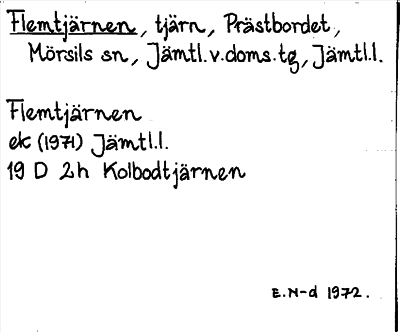 Flemtjärnen, tjärn, Prästbordet,
Mörsils sn, Jämtl.v.doms.tg, Jämtl.l.
Flemtjärnen
ek (1971) Jämtl.l.
19 D 2h Kolbodtjärnen
E.N-d 1972.